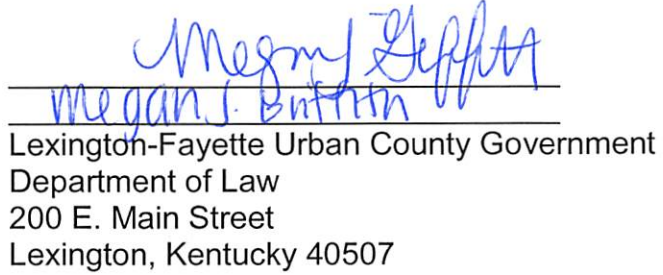 Megan J. Griffith
Lexington-Fayette Urban County Government
Department of Law
200 E. Main Street
Lexington, Kentucky 40507